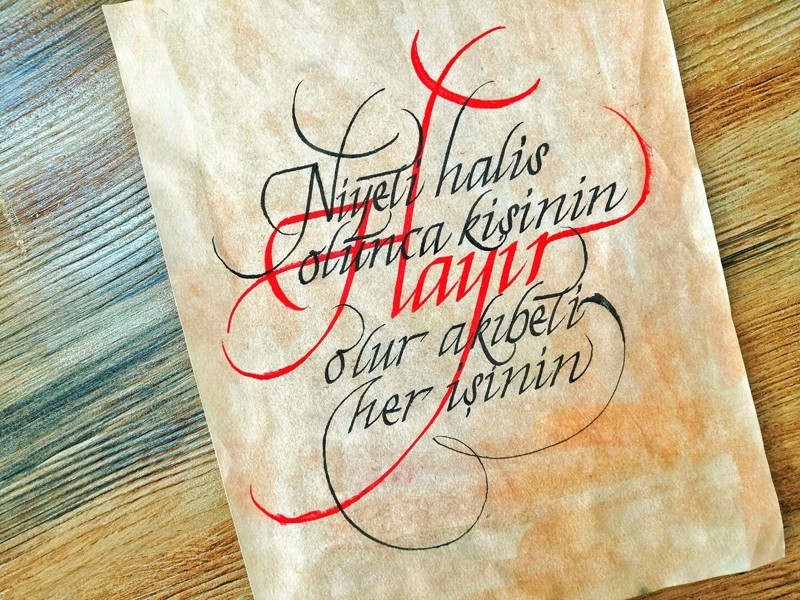 Niyeti halis
olunca kişinin
Hayır
olur akıbeti
her işinin